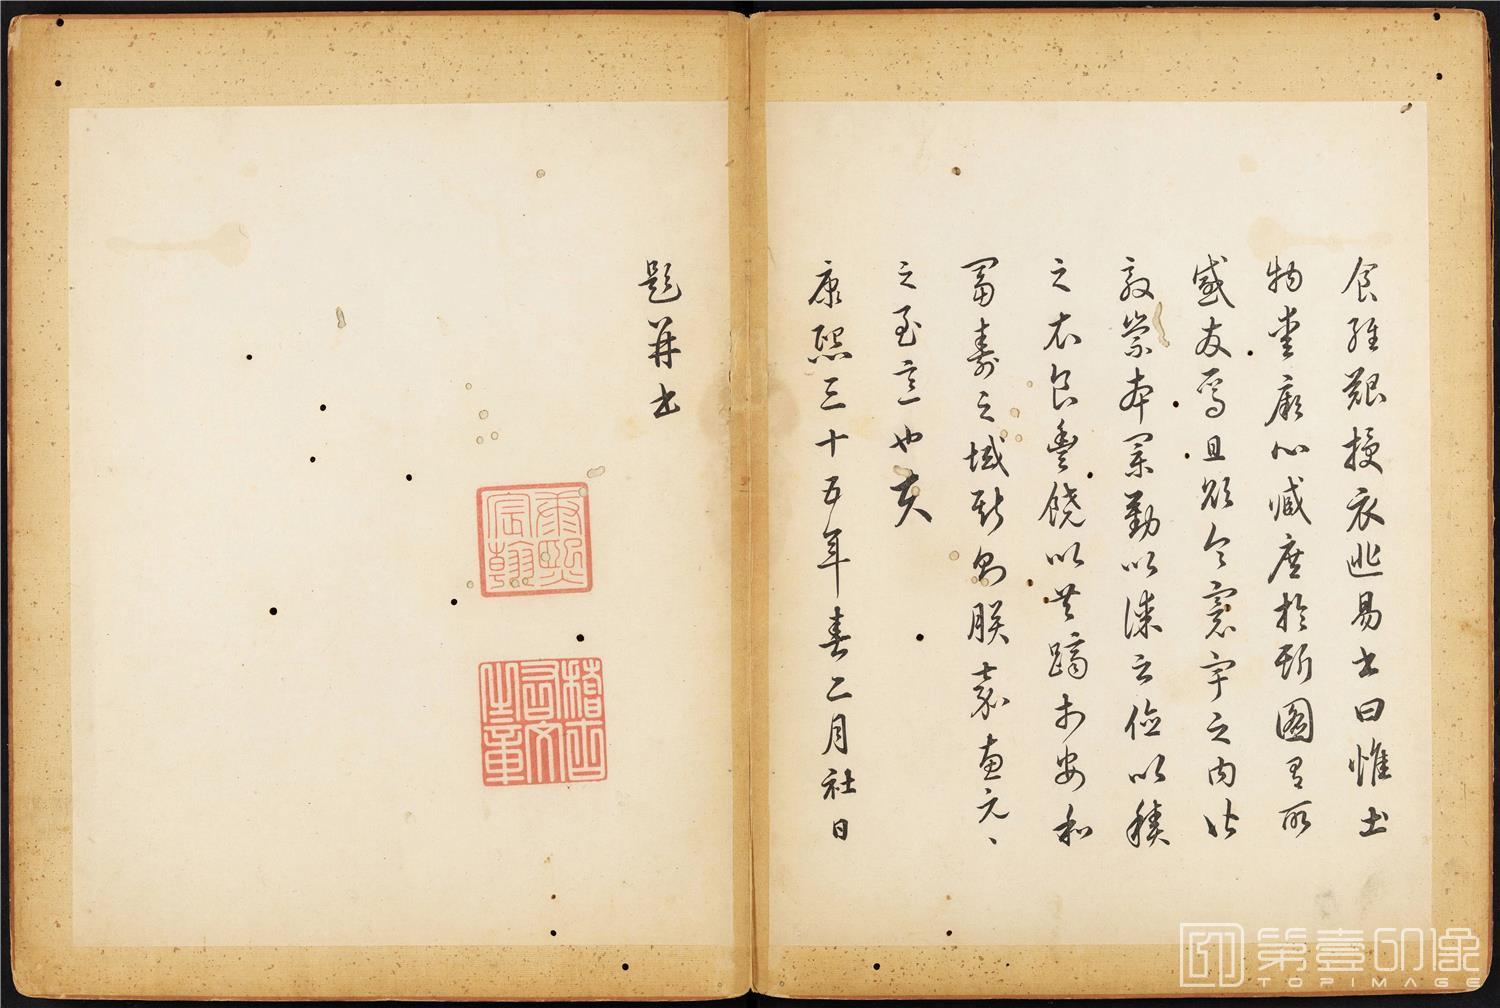 食維艱授衣匪易書曰惟土
物愛厥心臧庶於斯圖有所
感友焉且欲令寰宇之内皆
敦崇本業勤以謀之儉以積
之衣食豐饒以共躋於安和
富壽之域斯則朕嘉惠元〻
之至意也夫
康熙三十五年春二月社日
題并書
康熙宸翰
稽古右文之章
第壹印像
TOPIMAGE